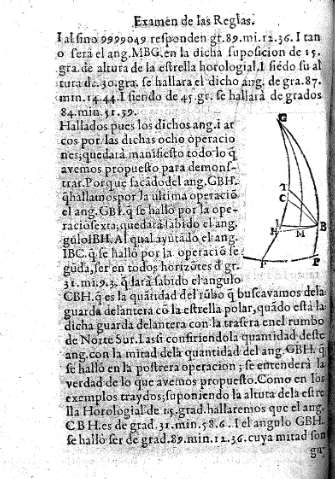 Examen de las Reglas.
I al sino 9999049. responden gr. 89. mi. 12. 36. I tan
o será el ang. MBG. en la dicha suposicion de 15.
gra. de altura de la estrella horologial. I siẽdo su al
tura de. 30. gra. se hallara el dicho ang. de gra. 87.
min. 14. 44. I siendo de 45. gr. se hallará de grados
84. min. 51. 39.
Hallados pues los dichos ang. i ar
cos por las dichas ocho operacio
nes; quedará manifiesto todo lo q̃
avemos propuesto para demons-
trar. Porque sacãdo del ang. GBH.
q̃ hallamos por la ultima operaciõ
el ang. GBI. q̃ se halló por la ope-
raciõ sexta; quedará sabido el ang.
gulo IBH. Al qual ayũtado el ang.
IBC. q̃ se halló por la operaciõ se
gũda, ser en todos horizõtes d̃ gr.
31. mi. 9. 3. q̃dará sabido el angulo
CBH. q̃ es la quãtidad del rũbo q̃ buscavamos de la
guarda delantera cõ la estrella polar, quãdo está la
dicha guarda delantera con la trasera en el rumbo
de Norte Sur. I assi confiriendo la quantidad deste
ang. con la mitad de la quantidad del ang. GBH. q̃
se halló en la postrera operacion; se entenderá la
verdad de lo que avemos propuesto. Como en los
exemplos traydos; suponiendo la altura de la estre
lla Horologial de 15. grad. hallaremos que el ang.
CBH. es de grad. 31. min. 58. 6. I el angulo GBH.
se halló ser de grad. 89. min. 12. 36. cuya mitad son
G
T
C
I
H
M
B
F
P